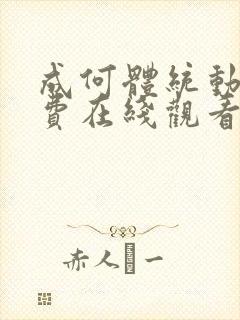 成何體統動
費在綫觀看
赤人 一